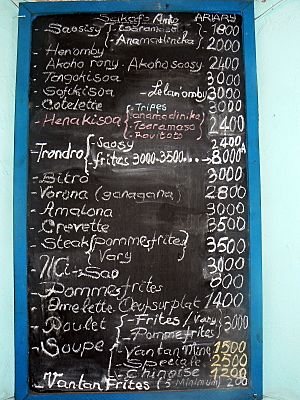 Sakafo Anio ARIARY
- Saosisy - Tsaramaso 1800
- Anamadinika 2000
- Hen'omby
- Akoho rony - Akoho saosy 2400
- Tongokisoa 3000
- Sofikisoa - Lelan'omby 3000
- Cotelette - Tripes 3000
- Henakisoa - anamadinika
- Tsaramaso 2400
- Ravitoto
- Trondro - Saosy 2400
- frites 3000-3500... 8000
- Bitro 3000
- Vorona (ganagana) 2800
- Amalona 3000
- Crevette 3500
- Steak - Pommes frites 3500
- Vary 3000
- Mi-Sao
- Pommes frites 800
- Omelette Oeuf sur plat 1400
- Poulet - Frites / Vary 3000
- Pomme frites
- Soupe - Van tan Mine 1500
- Speciale 2500
- Chinoise 1200
- Vantan Frites (5 Minimum) 200